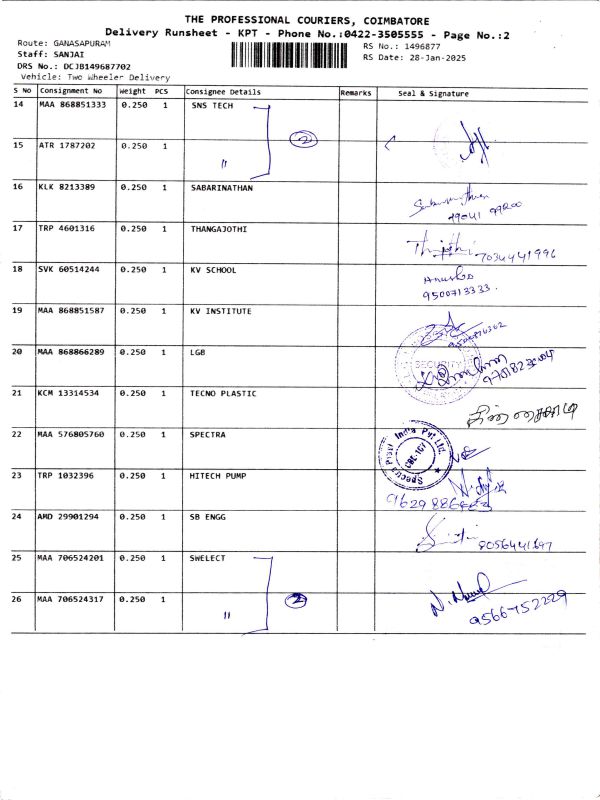 THE PROFESSIONAL COURIERS, COIMBATORE
Delivery Runsheet - KPT - Phone No.:0422-3505555 - Page No.:2
Route: GANASAPURAM
Staff: SANJAI
DRS No.: DCJB149687702
Vehicle: Two Wheeler Delivery
RS No.: 1496877
RS Date: 28-Jan-2025
S No Consignment No Weight PCS Consignee Details Remarks Seal & Signature
14 MAA 868851333 0.250 1 SNS TECH
2
15 ATR 1787202 0.250 1 "
16 KLK 8213389 0.250 1 SABARINATHAN
17 TRP 4601316 0.250 1 THANGAJOTHI 7034441996
18 SVK 60514244 0.250 1 KV SCHOOL
9500713333.
19 MAA 868851587 0.250 1 KV INSTITUTE
20 MAA 868866289 0.250 1 LGB SECURITY
21 KCM 13314534 0.250 1 TECNO PLASTIC
22 MAA 576805760 0.250 1 SPECTRA Spectra Plast India Pvt Ltd. CBE-107
23 TRP 1032396 0.250 1 HITECH PUMP
24 AMD 29901294 0.250 1 SB ENGG
25 MAA 706524201 0.250 1 SWELECT
2
26 MAA 706524317 0.250 1 " 9566752229